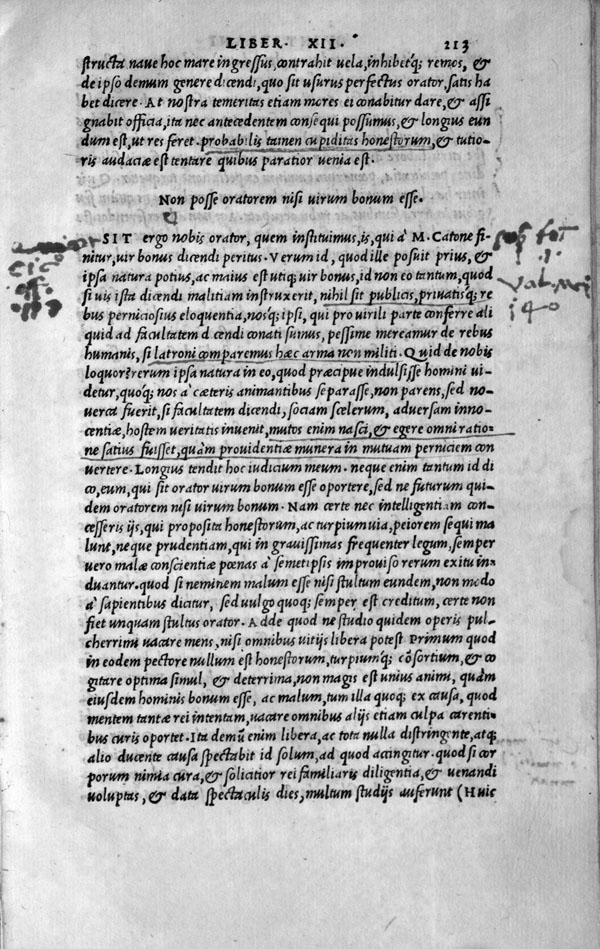 LIBER· XII· 213
structa naue hoc mare ingressus, contrahit uela, inhibetq; remos, &
de ipso demum genere dicendi, quo sit usurus perfectus orator, satis ha
bet dicere· At nostra temeritas etiam mores ei conabitur dare, & assi
gnabit officia, ita nec antecedentem consequi possumus, & longius eun
dum est, ut res feret· probabilis tamen cupiditas honestorum, & tutio-
ris audaciæ est tentare quibus paratior uenia est·
Non posse oratorem nisi uirum bonum esse·
SIT ergo nobis orator, quem instituimus, is, qui à M. Catone fi-
nitur, uir bonus dicendi peritus· Verum id, quod ille posuit prius, &
ipsa natura potius, ac maius est utiq; uir bonus, id non eo tantum, quod
si uis ista dicendi malitiam instruxerit, nihil sit publicis, priuatisq; re
bus perniciosius eloquentia, nosq; ipsi, qui pro uirili parte conferre ali
quid ad facultatem dicendi conati sumus, pessime mereamur de rebus
humanis, si latroni comparemus hæc arma non militi· Quid de nobis
loquor? rerum ipsa natura in eo, quod præcipue indulsisse homini ui
detur, quoq; nos à cæteris animantibus separasse, non parens, sed no-
uerca fuerit, si facultatem dicendi, sociam scelerum, aduersam inno-
centiæ, hostem ueritatis inuenit, mutos enim nasci, & egere omni ratio=
ne satius fuisset, quàm prouidentiæ munera in mutuam perniciem con
uertere· Longius tendit hoc iudicium meum· neque enim tantum id di
co, eum, qui sit orator uirum bonum esse oportere, sed ne futurum qui-
dem oratorem nisi uirum bonum· Nam certe nec intelligentiam con-
cesseris ijs, qui proposita honestorum, ac turpium uia, peiorem sequi ma
lunt, neque prudentiam, qui in grauissimas frequenter legum, semper
uero malæ conscientiæ pœnas à semetipsis improuiso rerum exitu in-
duantur· quod si neminem malum esse nisi stultum eundem, non modo
à sapientibus dicitur, sed uulgo quoq; semper est creditum, certe non
fiet unquam stultus orator· Adde quod ne studio quidem operis pul-
cherrimi uacare mens, nisi omnibus uitijs libera potest Primum quod
in eodem pectore nullum est honestorum, turpiumq; cōsortium, & co
gitare optima simul, & deterrima, non magis est unius animi, quàm
eiusdem hominis bonum esse, ac malum, tum illa quoq; ex causa, quod
mentem tantæ rei intentam, uacare omnibus alijs etiam culpa carenti-
bus curis oportet· Ita demū enim libera, ac tota nulla distringente, atq;
alio ducente causa spectabit id solum, ad quod accingitur· quod si cor
porum nimia cura, & solicitior rei familiaris diligentia, & uenandi
uoluptas, & data spectaculis dies, multum studijs auferunt (Huic